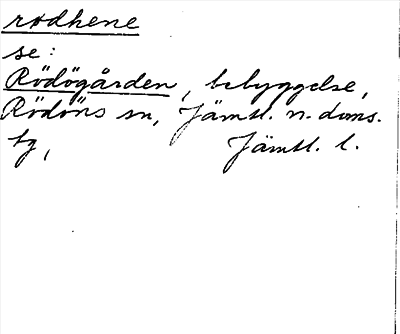 rødhene
se:
Rödögården, bebyggelse,
Rödöns sn, Jämtl. n. doms.
tg, Jämtl. l.